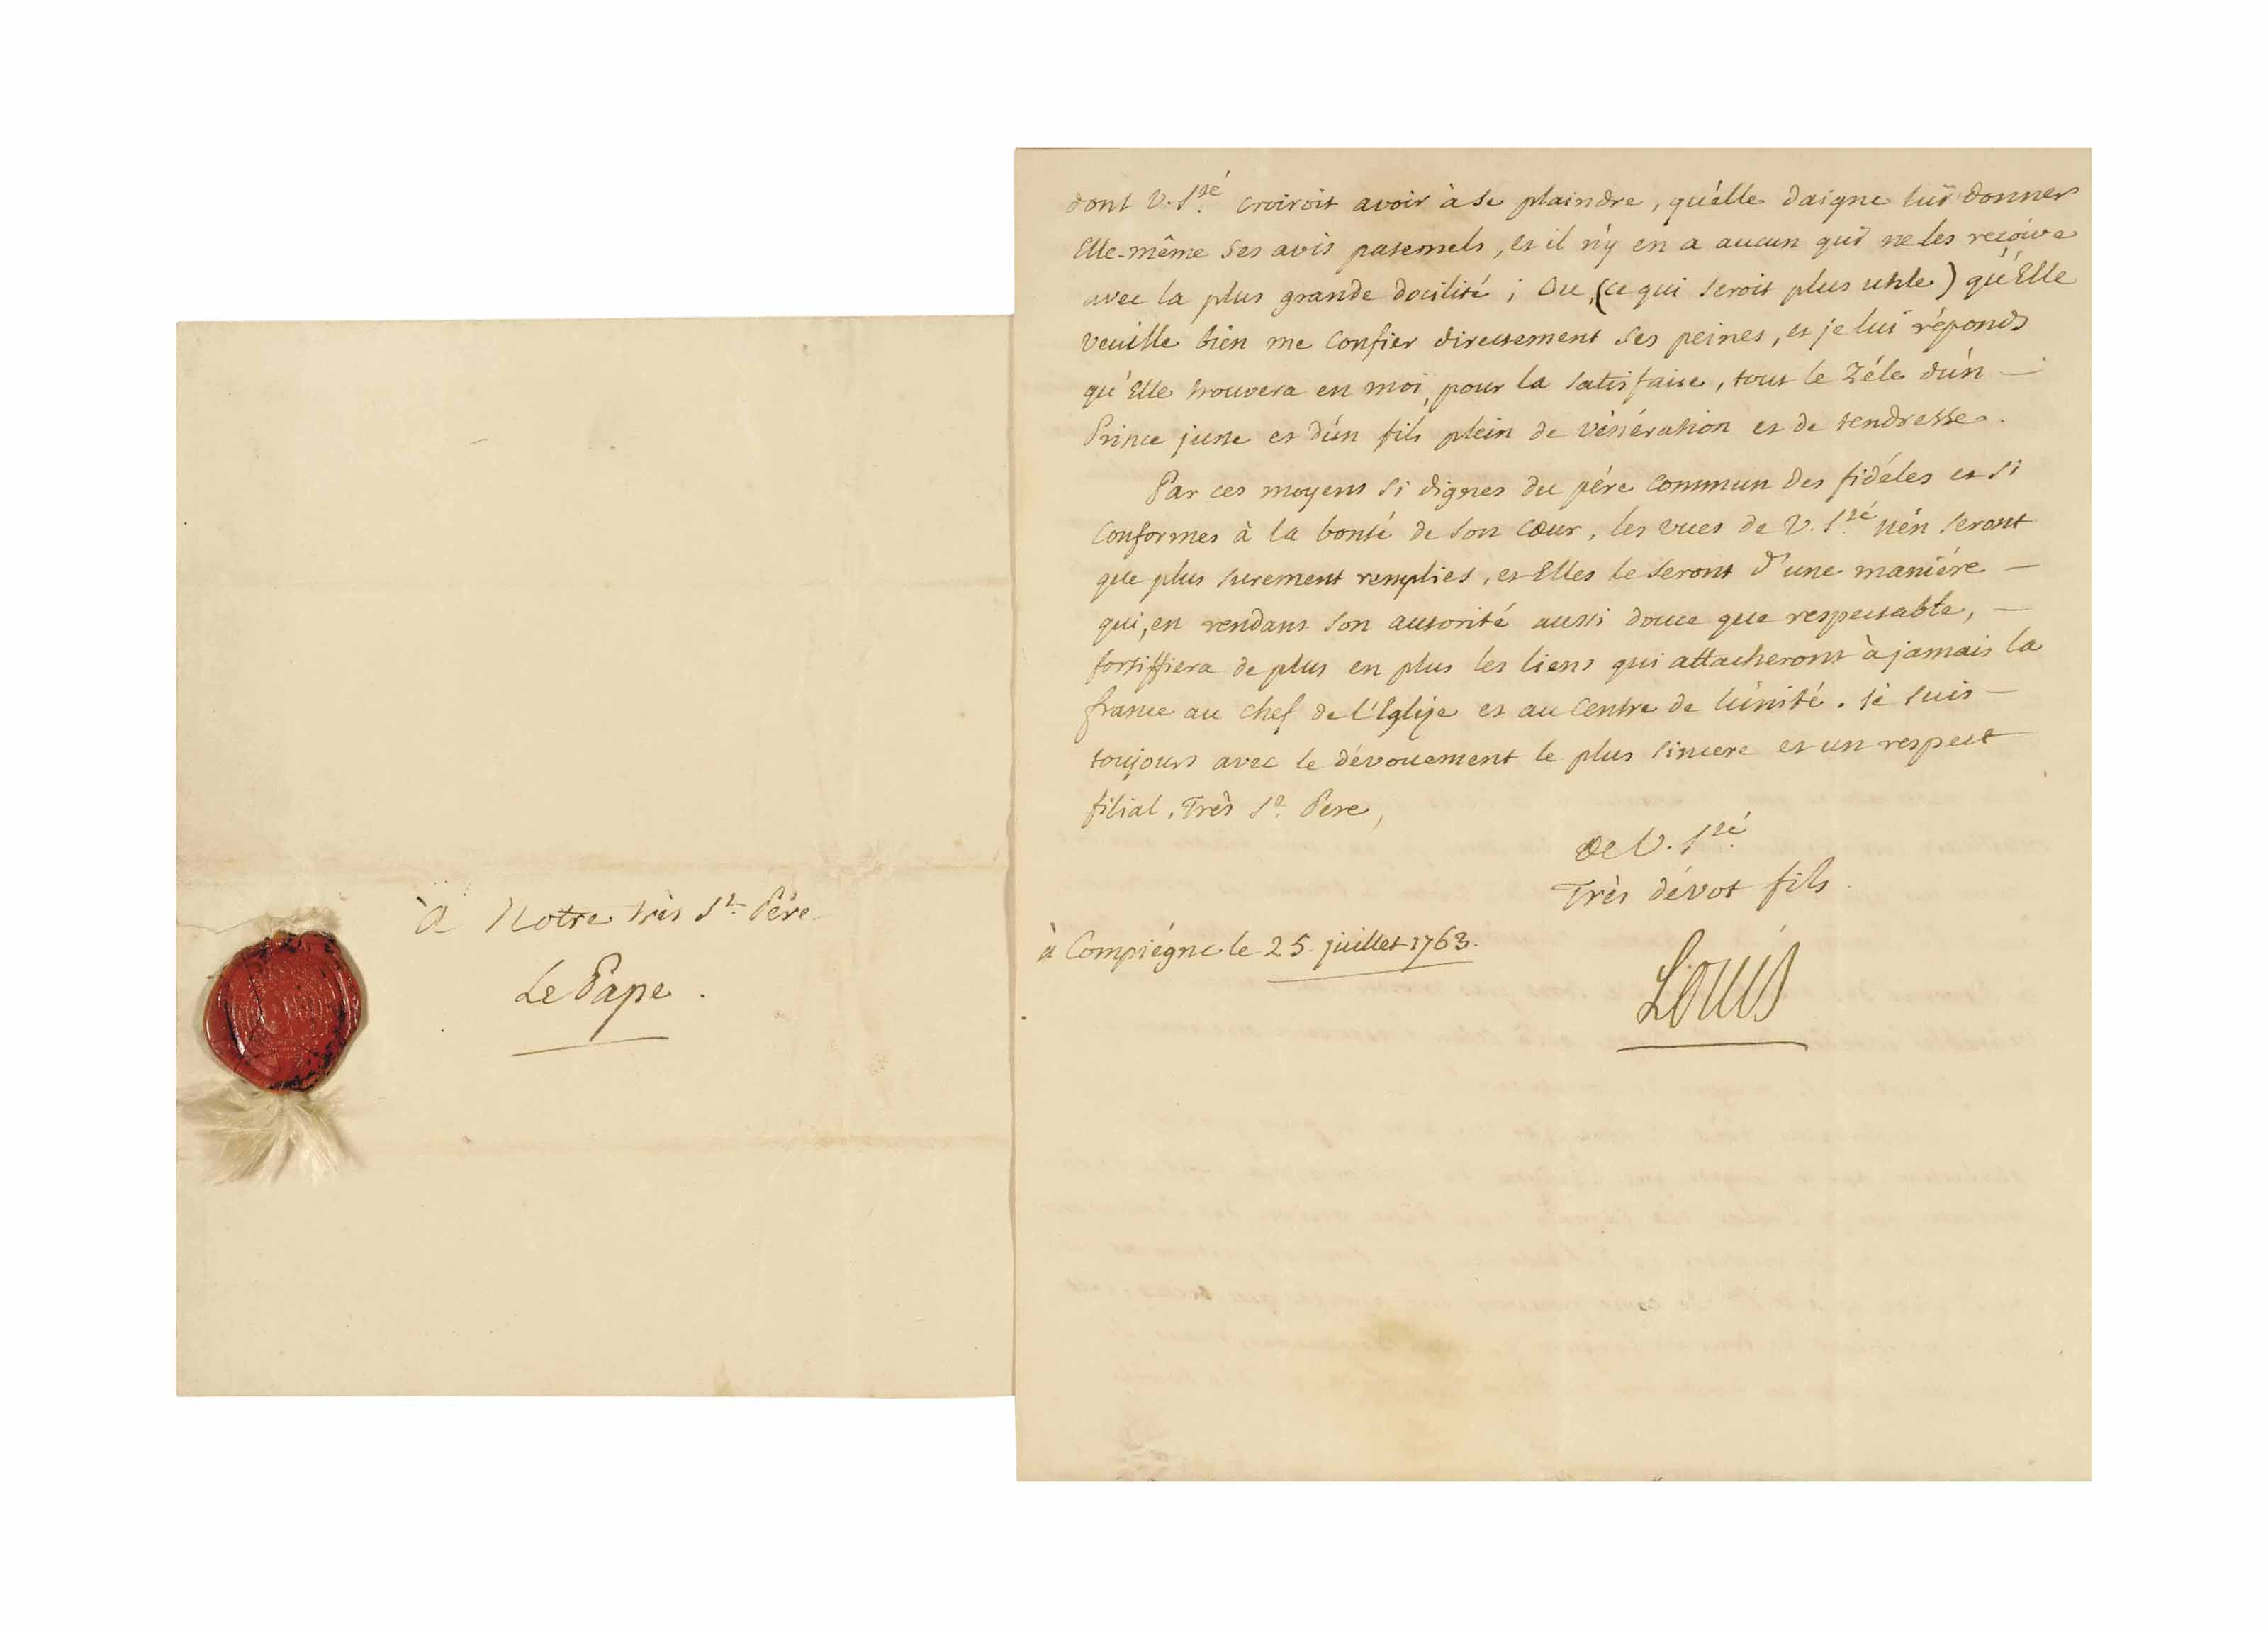 à Notre très St. Père
Le Pape.
dont V. Sté. croiroit avoir à se plaindre, qu'elle daigne lui donner
Elle-même ses avis paternels, et il n'y en a aucun qui ne les reçoive
avec la plus grande docilité; Ou, (ce qui seroit plus utile) qu'Elle
veuille bien me confier directement ses peines, et je lui réponds
qu'Elle trouvera en moi, pour la satisfaire, tout le Zéle d'un —
Prince juste et d'un fils plein de vénération et de tendresse.
Par ces moyens si dignes du pére commun des fidéles et si
conformes à la bonté de son cœur, les vues de V. Sté. n'en seront
que plus surement remplies, et Elles le seront d'une maniére —
qui, en rendant son autorité aussi douce que respectable, —
fortiffiera de plus en plus les liens qui attacheront à jamais la
france au chef de l'Eglise et au Centre de l'unité. Je suis —
toujours avec le dévouement le plus sincere et un respect
filial, Très St. Pere,
de V. Sté.
Très dévot fils
à Compiégne le 25. juillet 1763.
Louis